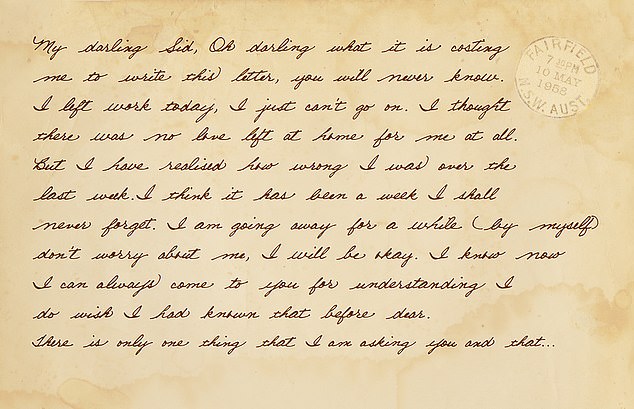 My darling Sid, Oh darling what it is costing
me to write this letter, you will never know.
I left work today, I just can't go on. I thought
there was no love left at home for me at all.
But I have realised how wrong I was over the
last week. I think it has been a week I shall
never forget. I am going away for a while (by myself)
don't worry about me, I will be okay. I know now
I can always come to you for understanding I
do wish I had known that before dear.
There is only one thing that I am asking you and that...
FAIRFIELD
10 MAY
1958
N.S.W. AUST.